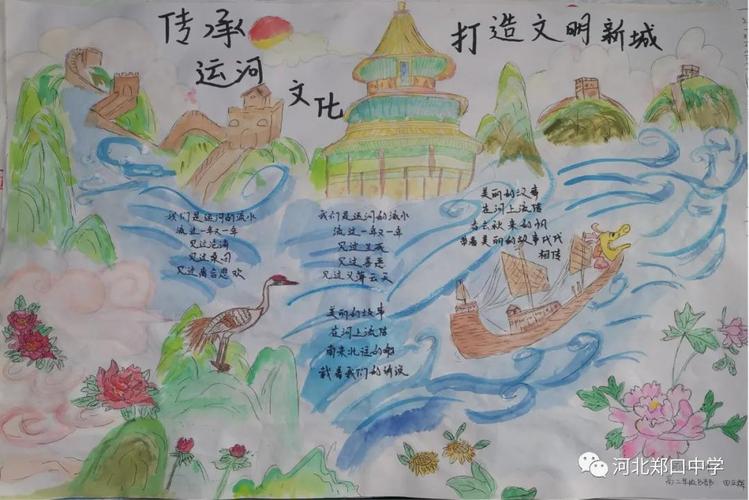 传承
运河
文化
打造文明新城
我们是运河的流水
流过一年又一年
见过沧海
见过桑田
见过离合悲欢
我们是运河的流水
流过一年又一年
见过生死
见过善恶
见过义薄云天
美丽的故事
在河上流传
南来北往的船
载着我们的诉说
美丽的故事
在河上流传
南去秋来的帆
带着美丽的故事代代
相传
河北郑口中学